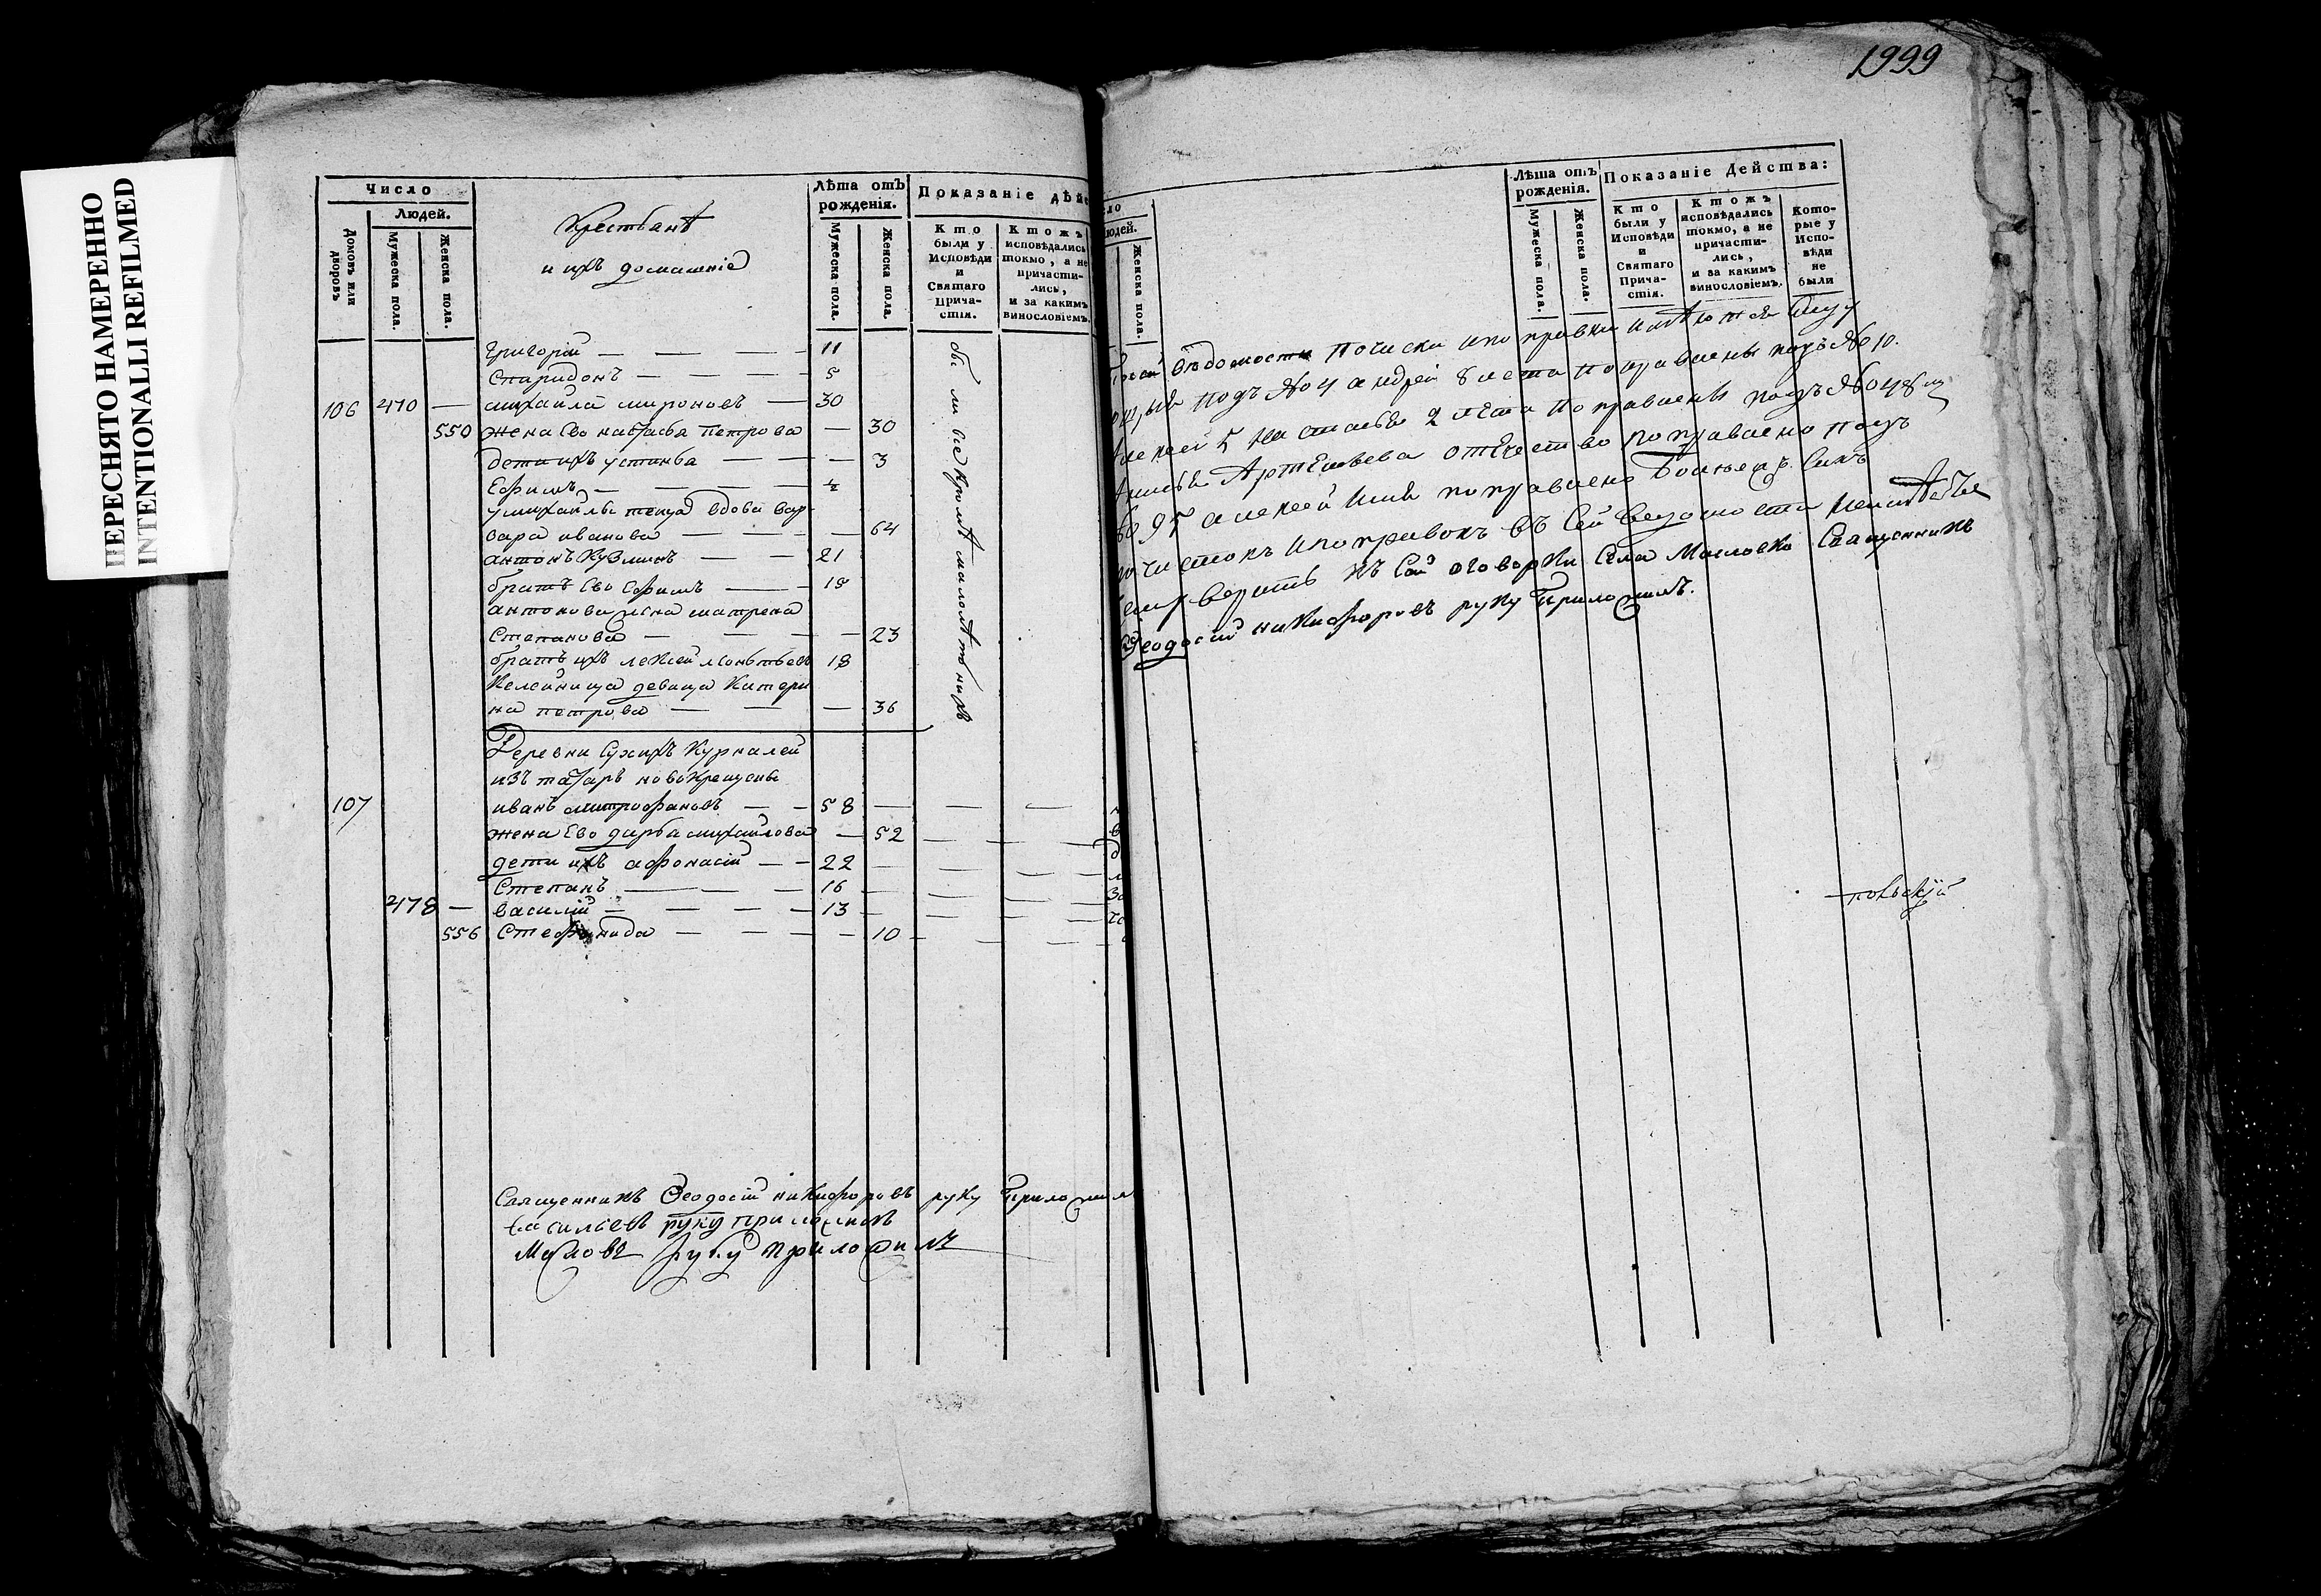 ПЕРЕСНЯТО НАМЕРЕННО
INTENTIONALLI REFILMED
Число
Людей.
Домовъ или дворовъ
Мужеска пола.
Женска пола.
Крестьянѣ
и ихъ домашніе
Лѣта отъ рожденія.
Мужеска пола.
Женска пола.
Показаніе дѣйс
Кто были у Исповѣди и Святаго Причастія.
Ктожъ исповѣдались токмо, а не причастились, и за какимъ винословіемъ.
Григорій — — — 11
Спиридонъ — — — 5
106 470 — михаила мироновъ — 30
550 жена Ево настасья петрова — 30
дети ихъ устинья — — — 3
Ефимъ — — — — ½
у михаилы теща вдова вар
вара иванова — — — 64
антонъ Кузминъ — — 21
братъ Ево Ефимъ — — 18
антонова жена матрена
Степанова — — — — 23
братъ ихъ лексей леонтьевъ 18
Келейница девица Катери
на петрова — — — 36
были все кромѣ малолѣтнихъ
Деревни Сухихъ Курналей
изъ татаръ новокрещены
107 иванъ митрофановъ — — 58 — — —
жена Ево дарья михаилова — 52 — — —
дети ихъ афонасій — — 22 — — —
Степанъ — — — 16 — — —
478 — василій — — — — 13 — — —
556 Стефанида — — — — 10 — — —
Священникъ Ѳеодосій никифоровъ руку приложилъ
васильевъ руку приложилъ
руку приложилъ
1999
сло
юдей.
Женска пола.
Лѣта отъ рожденія.
Мужеска пола.
Женска пола.
Показаніе Действа:
Кто были у Исповѣди и Святаго Причастія.
Ктожъ исповѣдались токмо, а не причастились, и за какимъ винословіемъ.
Которые у Исповѣди не были
сей вѣдомости почиски и поправки имѣются
подъ № 4 андрей 8 лета поправлены подъ № 10.
5 настасье 2 лѣта поправлены подъ №
Артемьева отечество поправлено подъ
95 алексей имя поправлено больше
почистокъ и поправокъ въ сей ведомости неимѣется
верить къ сей оговорки села Масловки Священникъ
Ѳеодосій никифоровъ руку приложилъ.
польскій